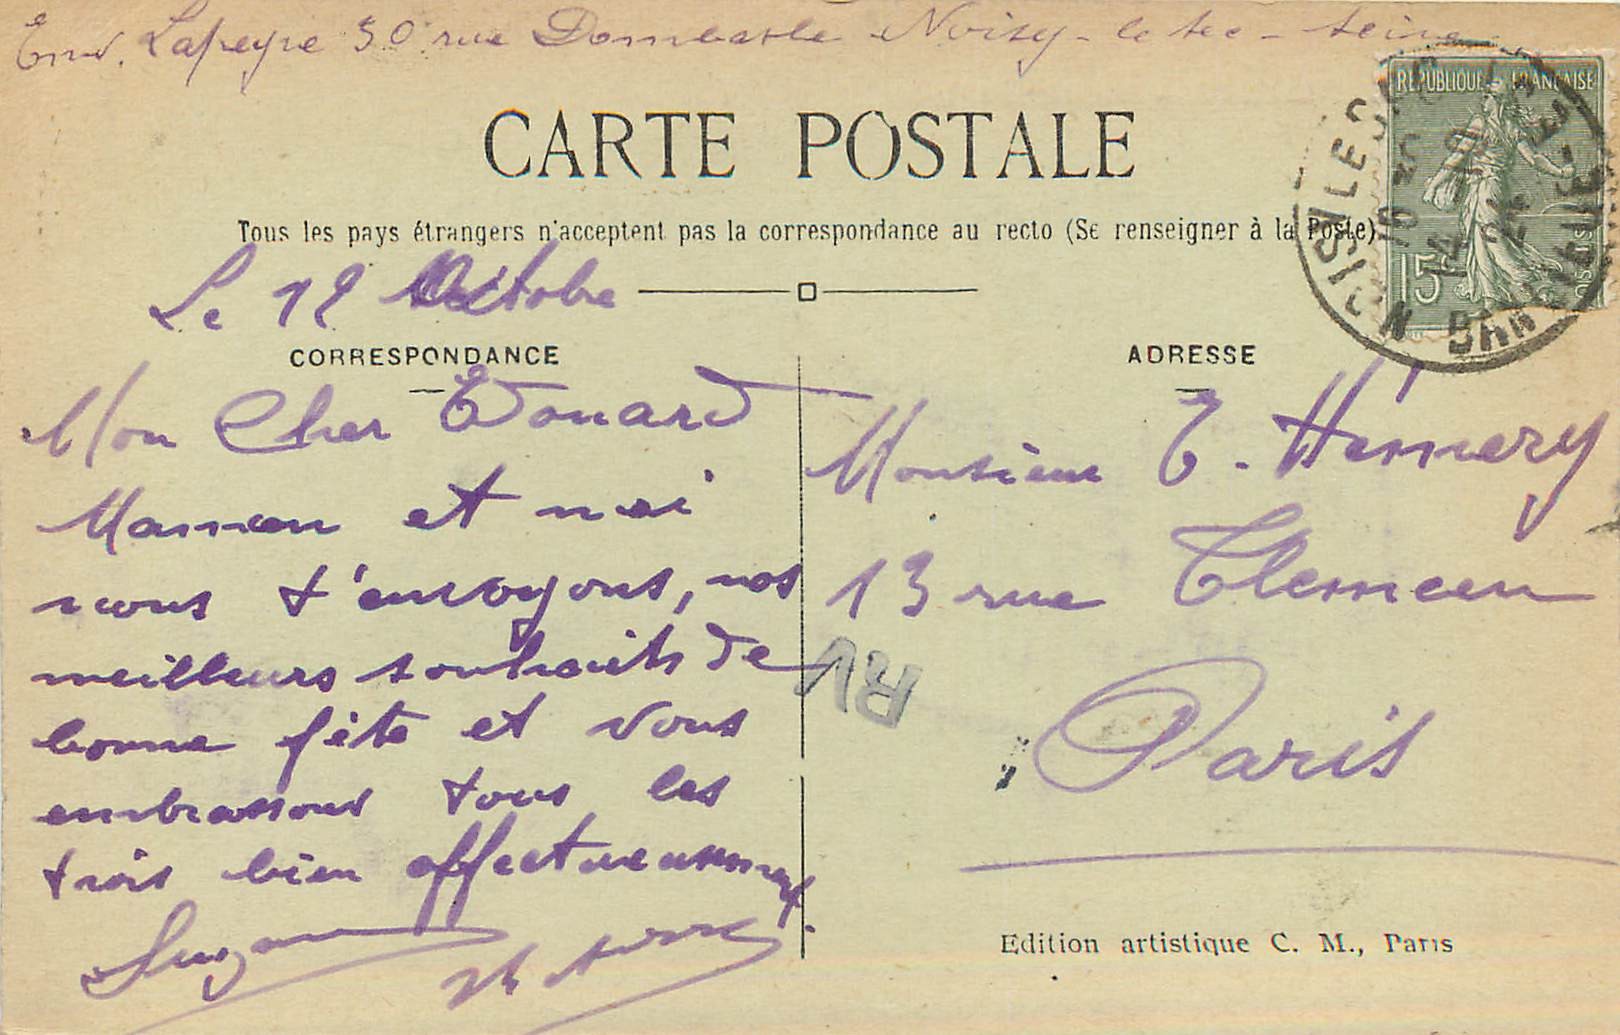 Env. Lapeyre 30 rue Dombasle Noisy-le sec - Seine
CARTE POSTALE
Tous les pays étrangers n'acceptent pas la correspondance au recto (Se renseigner à la Poste)
REPUBLIQUE FRANÇAISE
15
Le 12 Octobre
CORRESPONDANCE
Mon Cher Edouard
Maman et moi
nous t'envoyons, nos
meilleurs souhaits de
bonne fête et vous
embrassons tous les
trois bien affectueusement.
Suzanne
ADRESSE
Monsieur E. Hémery
13 rue Tlemcen
Paris
Edition artistique C. M., Paris